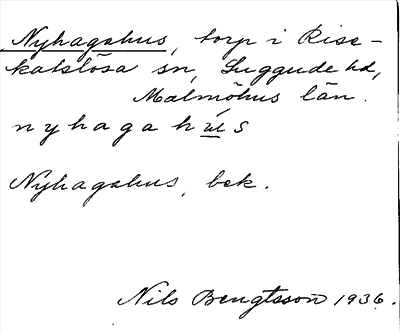 Nyhagahus, torp i Rise-
katslösa sn, Luggude hd,
Malmöhus län.
nyhagahùs
Nyhagahus, bek.
Nils Bengtsson 1936.